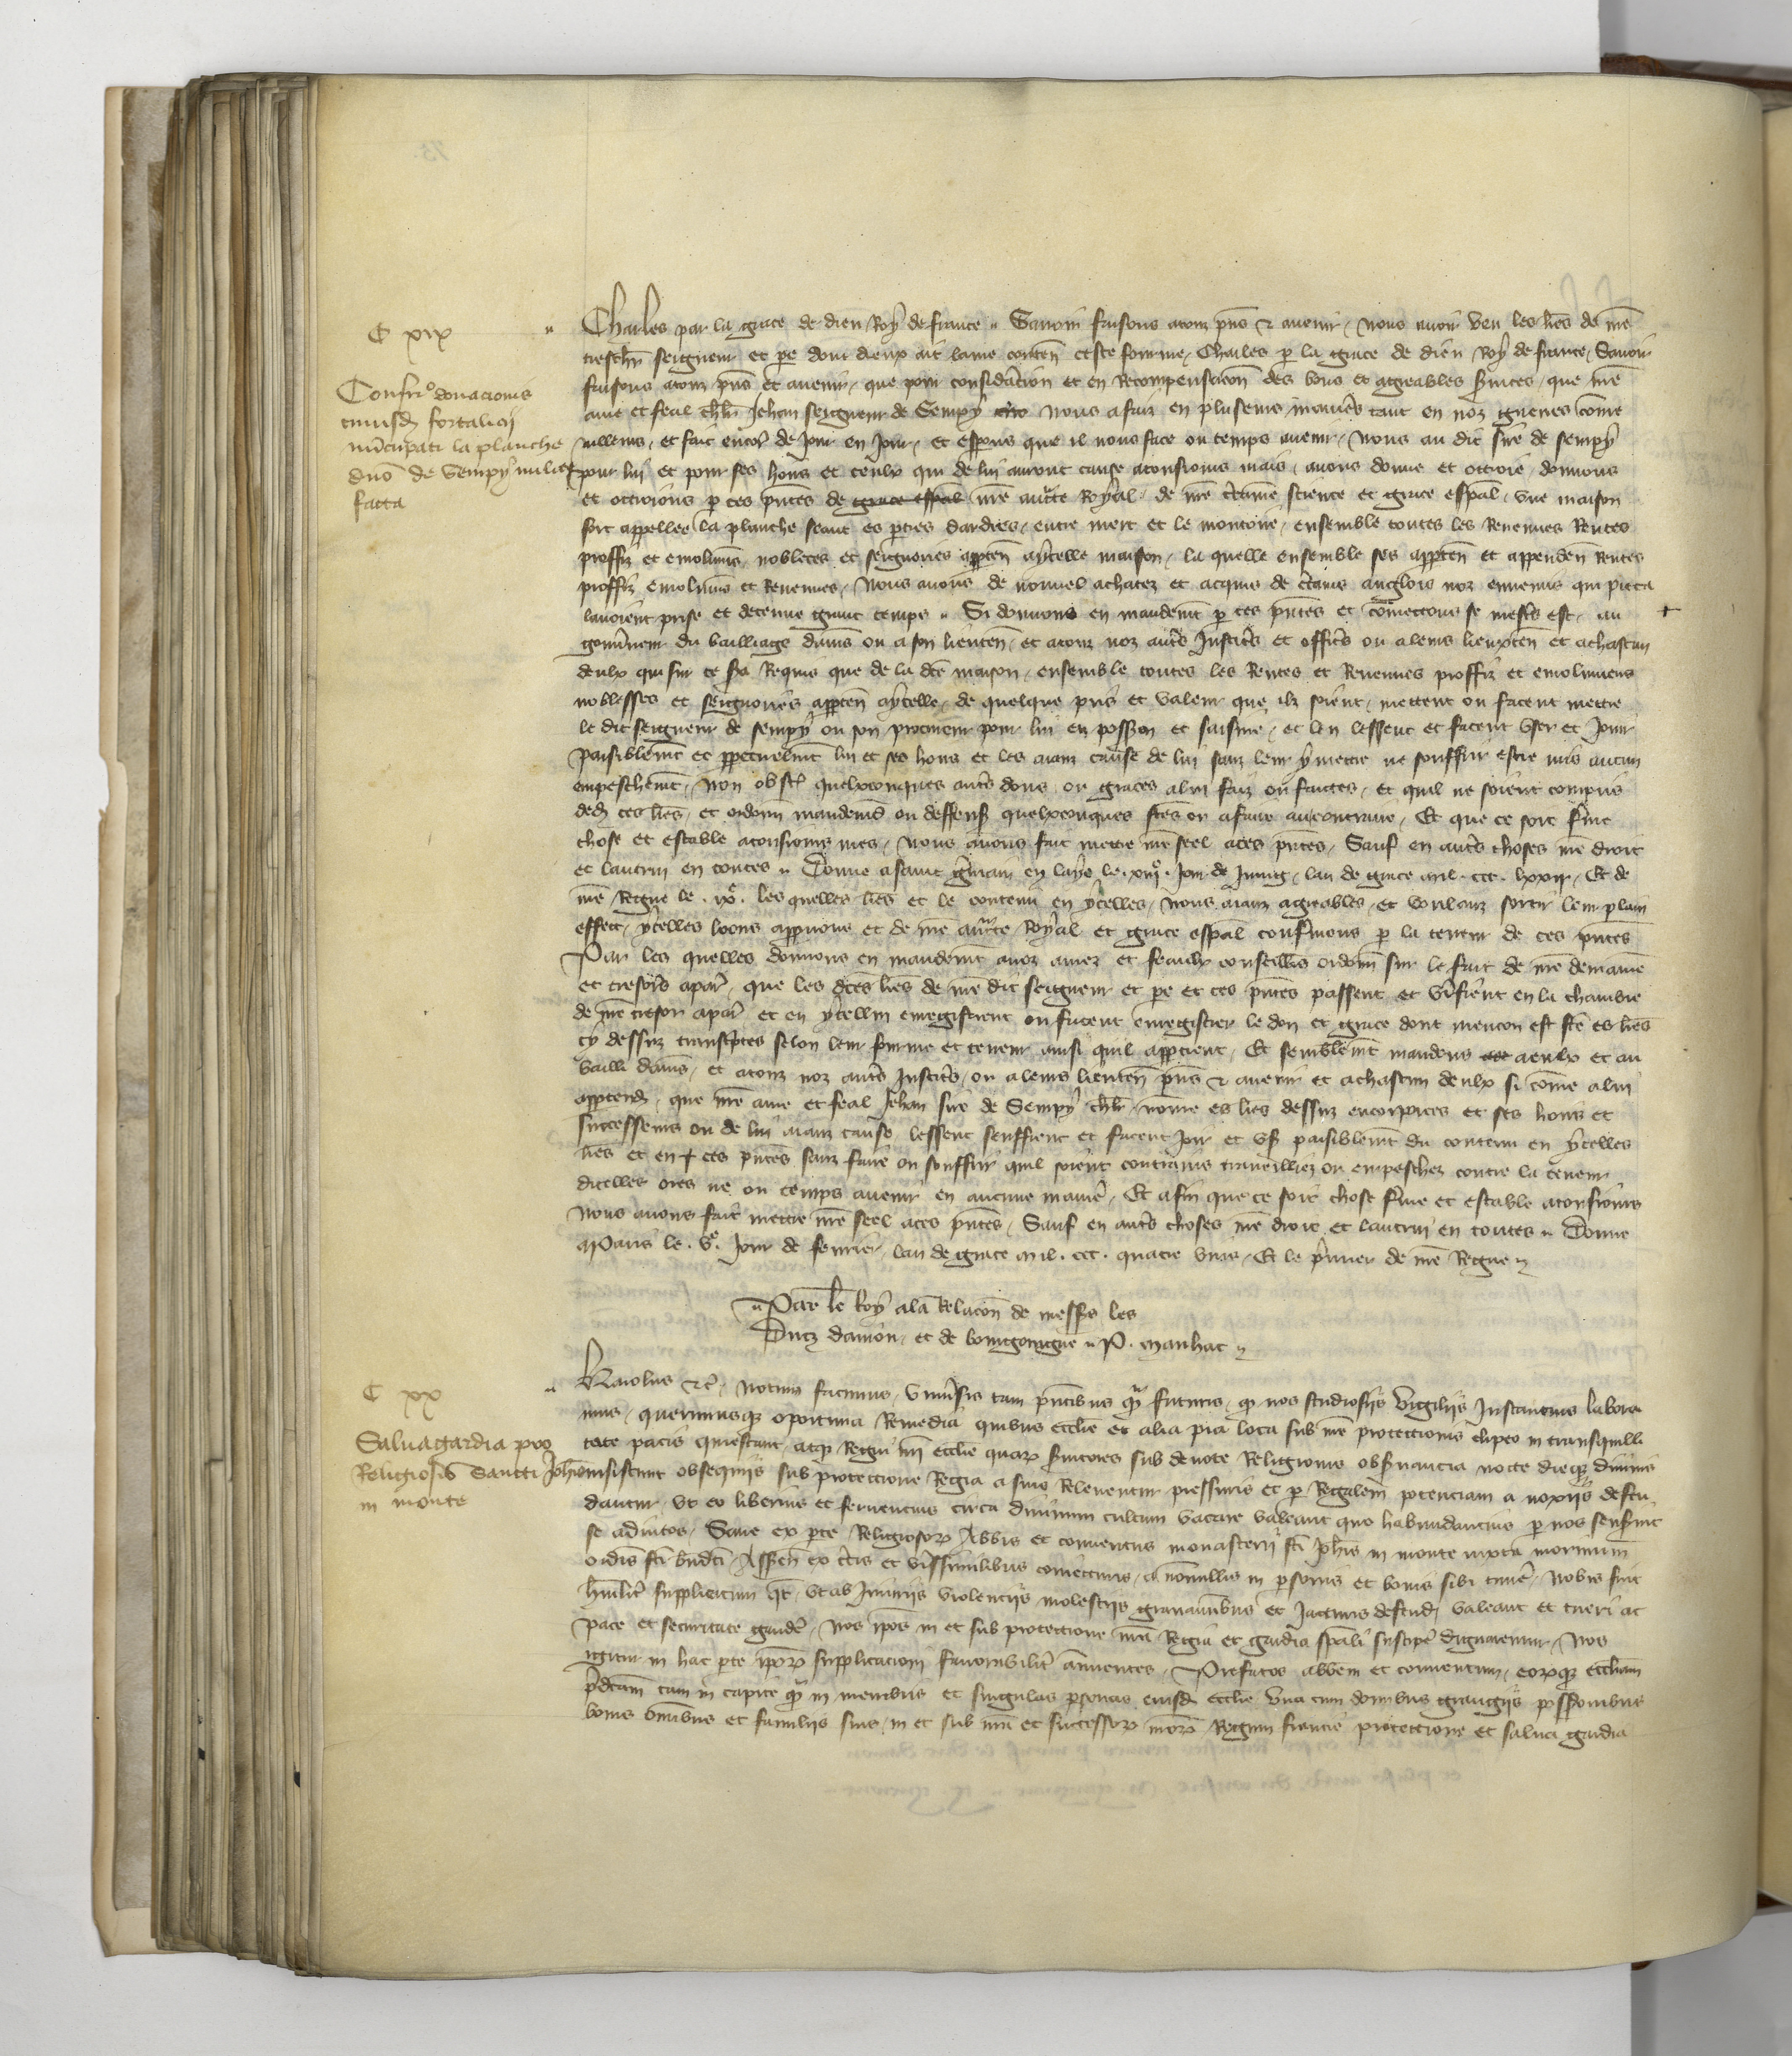 C xix
Confirmo donacionis
cuiusd fortalicii
nuncupati la planche
dno de Sempy militi
facta
Charles par la grace de dieu Roy de france Savoir faisons a touz pns & avenir, Nous avoir veu les lres de nre
treschr seigneur et pere dont dieux ait lame conten ceste fourme, Charles p la grace de dieu Roy de france, Savoir
faisons a touz pns et avenir, que pour consideracion et en Recompensacion des bons et agreables services, que nre
ame et feal chlr Jehan seigneur de Sempy nous a faiz en plusieurs manieres tant en noz guerres come
ailleurs, et fait encor de Jour en Jour, et esperons que il nous face ou temps avenir, Nous au dit sire de sempy
pour lui et pour ses hoirs et ceulx qui de lui auront cause a tousiours mais, avons donne et octroie, donnons
et octroions p ces pntes de grace espal nre aucte Royal de nre ctaine science et grace espal, une maison
fort appellee la planche seant es pties dardres, entre merc et le montoire, ensemble toutes les Revenues Rentes
proffiz et emolumens, nobleces et seignouries apparten a ycelle maison, la quelle ensemble ses apparten et appenden Rentes
proffiz emolumens et Revenues, Nous avons de nouvel achatez et acquis de ctains anglois noz ennemis qui pieca
lavoient prise et detenue grant temps Si donnons en mandemt p ces pntes et comettons se mestier est, au
gouverneur du bailliage damiens ou a son lieuten, et a touz noz autres Justiciers et officiers ou a leurs lieuxten et a chascun
deulx qui sur ce sera Requis que de la dite maison, ensemble toutes les Rentes et Revenues proffiz et emolumens
noblesses et seignouries apparten a ycelle, de quelque pris et valeur que ilz soient, mettent ou facent mettre
le dit seigneur de sempy ou son procureur pour lui en possession et saisine, et len lessent et facent user et Jouir
paisiblemt et ppetuelmt lui et ses hoirs et les aians cause de lui sanz leur y mettre ne souffrir estre mis aucun
empeschemt, Non obst quelxconques autres dons ou graces a lui faiz ou faictes, et quil ne soient compris
dedens ces lres, et ordonn mandemens ou deffenses quelxconques fetes ou a faire au contraire, Et que ce soit ferme
chose et estable a tousiours mes, Nous avons fait mettre nre seel a ces pntes, Sauf en autres choses nre droit
et lautrui en toutes Donne a saint germain en laye le xiiii jour de Juing, lan de grace mil ccc lxxii, Et de
nre Regne le ix. les quelles lres et le contenu en ycelles, Nous aianz agreables, et voulanz sortir leur plain
effect, ycelles loons approuvons et de nre aucte Royal et grace espal confermons p la teneur de ces pntes
Par les quelles donnons en mandemt a noz amez et feaulx conseilliers ordenez sur le fait de nre demaine
et tresoriers a paris, que les dites lres de nre dit seigneur et pere et ces pntes passent et verifient en la chambre
de nre tresor a paris, et en ycellui enregistrent ou facent enregistrer le don et grace dont mencon est fete es lres
cy dessuz transcriptes selon leur fourme et teneur ainsi quil appartient, Et semblemt mandons a eulx et au
bailli damiens, et a touz noz autres Justiciers, ou a leurs lieuten pns & avenir et a chascun deulx si come a lui
appartendra, que nre ame et feal Jehan sire de Sempy chlr nomme es lres dessuz encorporees et ses hoirs et
successeurs ou de lui aianz cause, lessent seuffrent et facent Joir et user paisiblemt du contenu en ycelles
lres et en ces pntes sanz faire ou souffrir quil soient contrains travailliez ou empeschez contre la teneur
dicelles ores ne ou temps avenir en aucune maniere, Et afin que ce soit chose ferme et estable a tousiours
Nous avons fait mettre nre seel a ces pntes, Sauf en autres choses nre droit et lautrui en toutes Donne
a Paris le v jour de fevrier, lan de grace mil ccc quatre vins, Et le primer de nre Regne
Par le Roy a la Relacon de messrs les
Ducz daniou et de bourgoingne P. manhac
C xx
Salvagardia pro
Religiosis Sancti Johis
in monte
Karolus &c, Notum facimus, Universis tam pntibus quam futuris, quod nos studiosiis Vigiliis Instancius labora
mus, querimusque oportuna Remedia quibus ecclie et alia pia loca sub nre protectionis clipeo in tranquilli
tate pacis quiescant, atque Regni nri ecclie quarum servitores sub devote Religionis observancia nocte dieque divinis
insistunt obsequiis sub protectione Regia a suis Releventur pressuris et p Regalem potenciam a noxiis defen
dantur, ut eo liberius et ferventius circa divinum cultum vacare valeant quo habundancius p nos senserint
se adiutos, Sane ex pte Religiosorum Abbis et conventus monasterii sci Johis in monte iuxta morinum
ordis sci bndci, Asseren ex ctis et verissimilibus coniecturis, a nonnullis in psonis et bonis sibi timere, Nobis fuit
humiliter supplicatum quod, ut ab Iniuriis violenciis molestiis gravaminibus et Iacturis defendi valeant et tueri ac
pace et securitate gaudere, Nos ipos in et sub protectione nra Regia et gardia spali suscipere dignaremur, Nos
igitur in hac pte ipsorum supplicacioni favorabiliter annuentes, Prefatos abbem et conventum, eorumque eccliam
predictam tam in capite quam in membris et singulas psonas eiusd ecclie una cum domibus grangiis possessionibus
bonis omnibus et familiis suis, in et sub nra et successorum nrorum Regum francie protectione et salva gardia